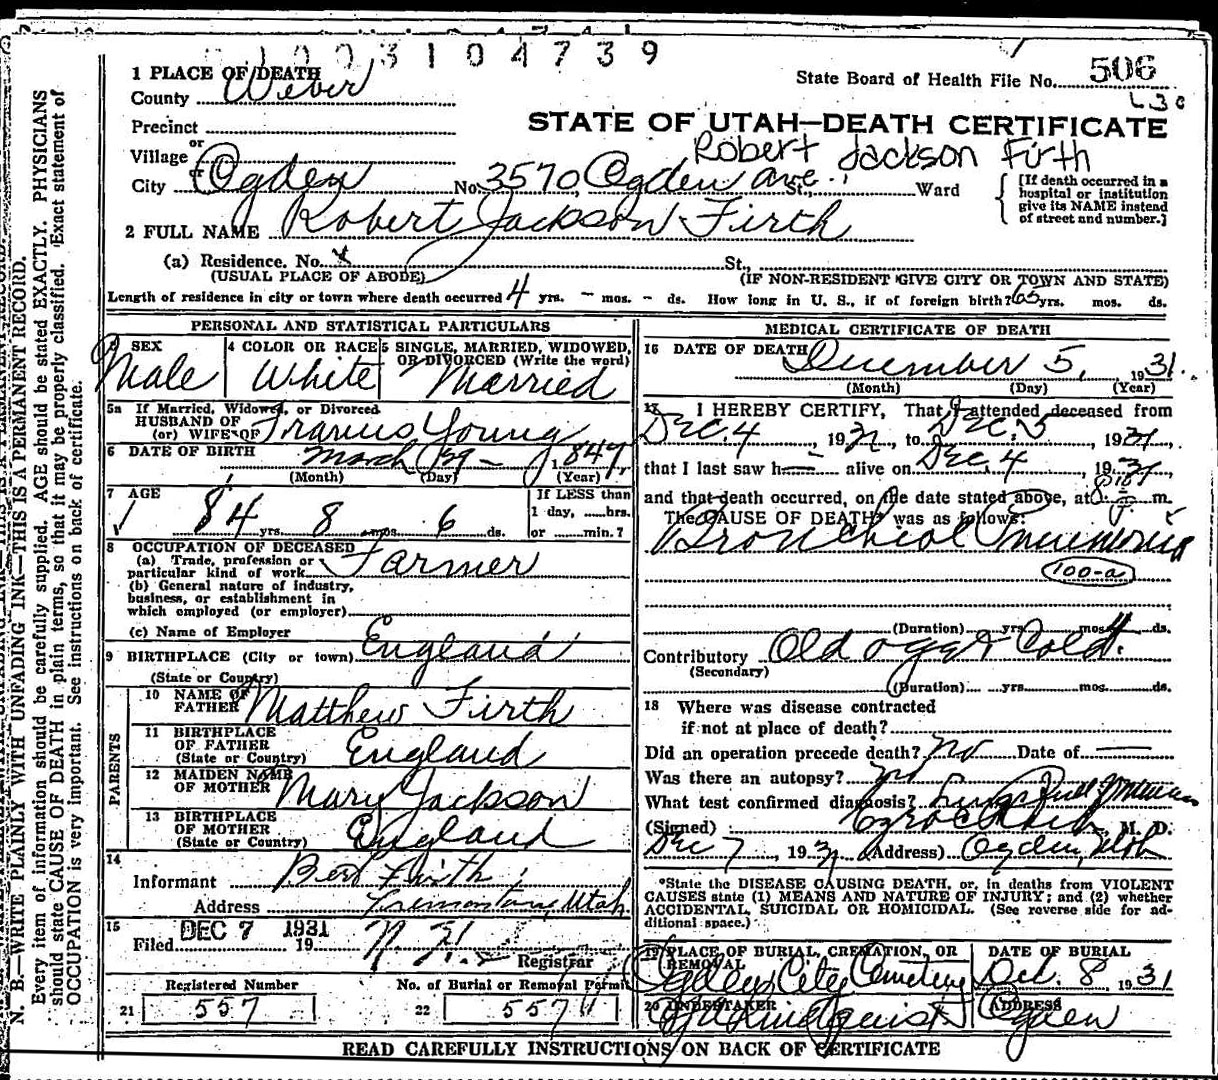 1003104739
1 PLACE OF DEATH
County Weber
State Board of Health File No. 506
Precinct
STATE OF UTAH—DEATH CERTIFICATE
or
Village
Robert Jackson Firth
City Ogden No. 3570 Ogden ave. St., Ward
[If death occurred in a hospital or institution give its NAME instead of street and number.]
2 FULL NAME Robert Jackson Firth
(a) Residence. No. St.,
(USUAL PLACE OF ABODE) (IF NON-RESIDENT GIVE CITY OR TOWN AND STATE)
Length of residence in city or town where death occurred 4 yrs. – mos. – ds. How long in U. S., if of foreign birth? 65 yrs. mos. ds.
PERSONAL AND STATISTICAL PARTICULARS
3 SEX 4 COLOR OR RACE 5 SINGLE, MARRIED, WIDOWED, OR DIVORCED (Write the word)
Male White Married
5a If Married, Widowed, or Divorced
HUSBAND OF
(or) WIFE OF Francis Young
6 DATE OF BIRTH March 29 – 1847
(Month) (Day) (Year)
7 AGE If LESS than
1 day, hrs.
84 yrs. 8 mos. 6 ds. or min.?
8 OCCUPATION OF DECEASED
(a) Trade, profession or
particular kind of work Farmer
(b) General nature of industry,
business, or establishment in
which employed (or employer)
(c) Name of Employer
9 BIRTHPLACE (City or town) England
(State or Country)
PARENTS
10 NAME OF
FATHER Matthew Firth
11 BIRTHPLACE
OF FATHER England
(State or Country)
12 MAIDEN NAME
OF MOTHER Mary Jackson
13 BIRTHPLACE
OF MOTHER England
(State or Country)
14
Informant Bert Firth
Address Tremonton, Utah
15
Filed DEC 7 1931 19
Registrar
Registered Number No. of Burial or Removal Permit
21 557 22 557
MEDICAL CERTIFICATE OF DEATH
16 DATE OF DEATH December 5, 1931.
(Month) (Day) (Year)
17 I HEREBY CERTIFY, That I attended deceased from
Dec. 4, 1931, to Dec. 5 1931,
that I last saw h alive on Dec 4 1931
and that death occurred, on the date stated above, at m.
The CAUSE OF DEATH* was as follows:
Bronchial Pneumonia
100-a
(Duration) yrs. mos. 4 ds.
Contributory Old age & Cold.
(Secondary)
(Duration) yrs. mos. ds.
18 Where was disease contracted
if not at place of death?
Did an operation precede death? no Date of
Was there an autopsy? no
What test confirmed diagnosis?
(Signed) M. D.
Dec 7, 1931 (Address) Ogden, Utah
*State the DISEASE CAUSING DEATH, or, in deaths from VIOLENT
CAUSES state (1) MEANS AND NATURE OF INJURY; and (2) whether
ACCIDENTAL, SUICIDAL OR HOMICIDAL. (See reverse side for ad-
ditional space.)
19 PLACE OF BURIAL, CREMATION, OR REMOVAL DATE OF BURIAL
Ogden City Cemetery Dec. 8 1931
20 UNDERTAKER ADDRESS
Lindquist Ogden
READ CAREFULLY INSTRUCTIONS ON BACK OF CERTIFICATE
N. B.—WRITE PLAINLY WITH UNFADING INK—THIS IS A PERMANENT RECORD.
Every item of information should be carefully supplied. AGE should be stated EXACTLY. PHYSICIANS
should state CAUSE OF DEATH in plain terms, so that it may be properly classified. Exact statement of
OCCUPATION is very important. See instructions on back of certificate.